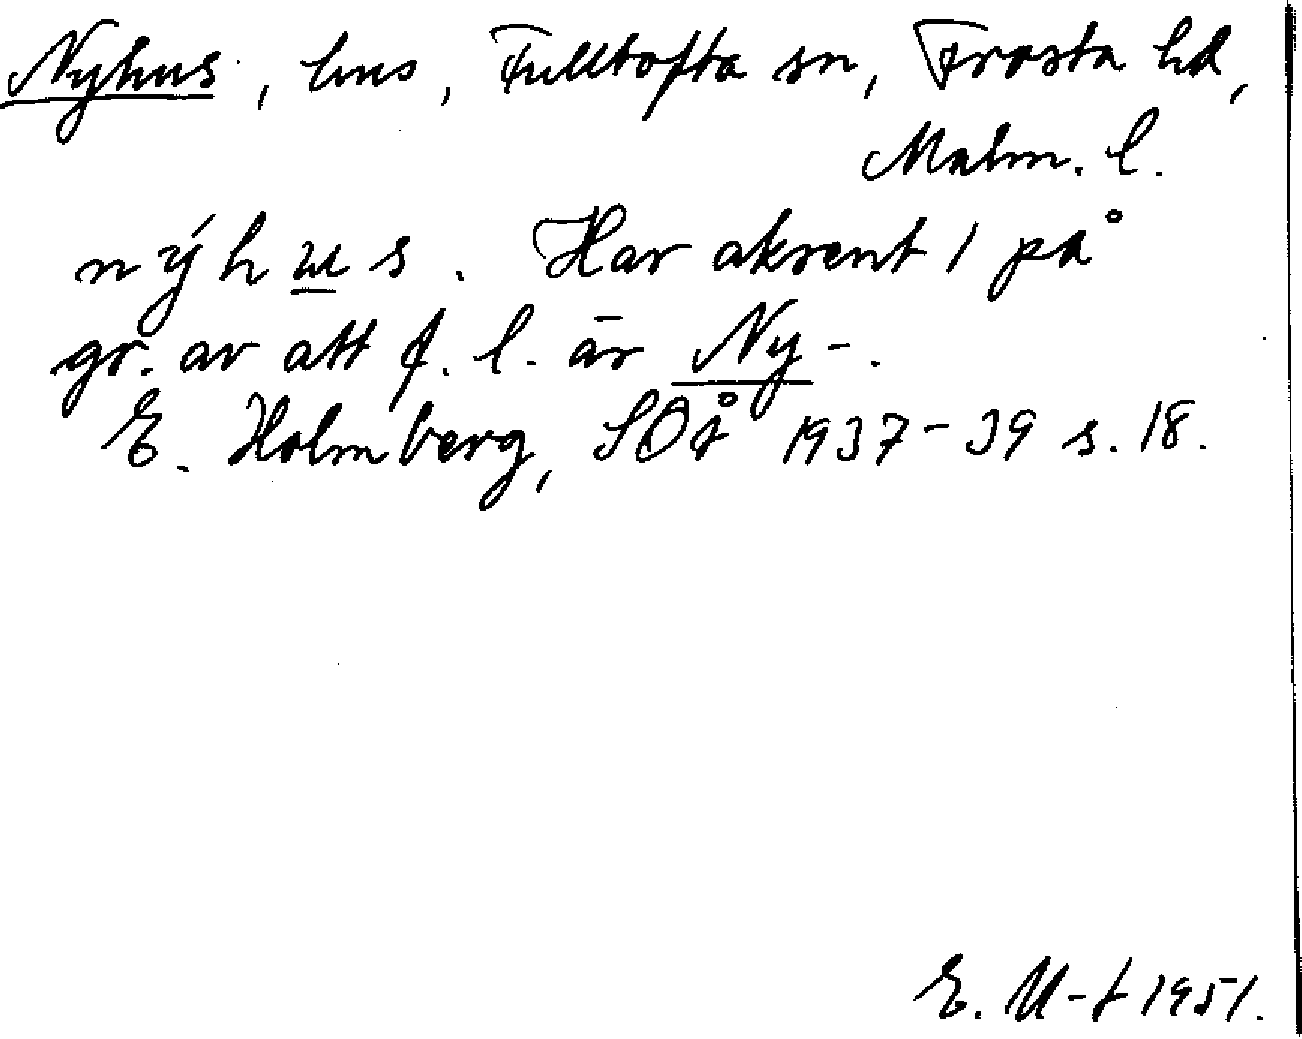 Nyhus, hus, Fulltofta sn, Frosta hd,
Malm. l.
nýhus. Har aksent 1 på
gr. av att f. l. är Ny-.
E. Holmberg, SOÅ 1937-39 s. 18.
E. M-t 1951.